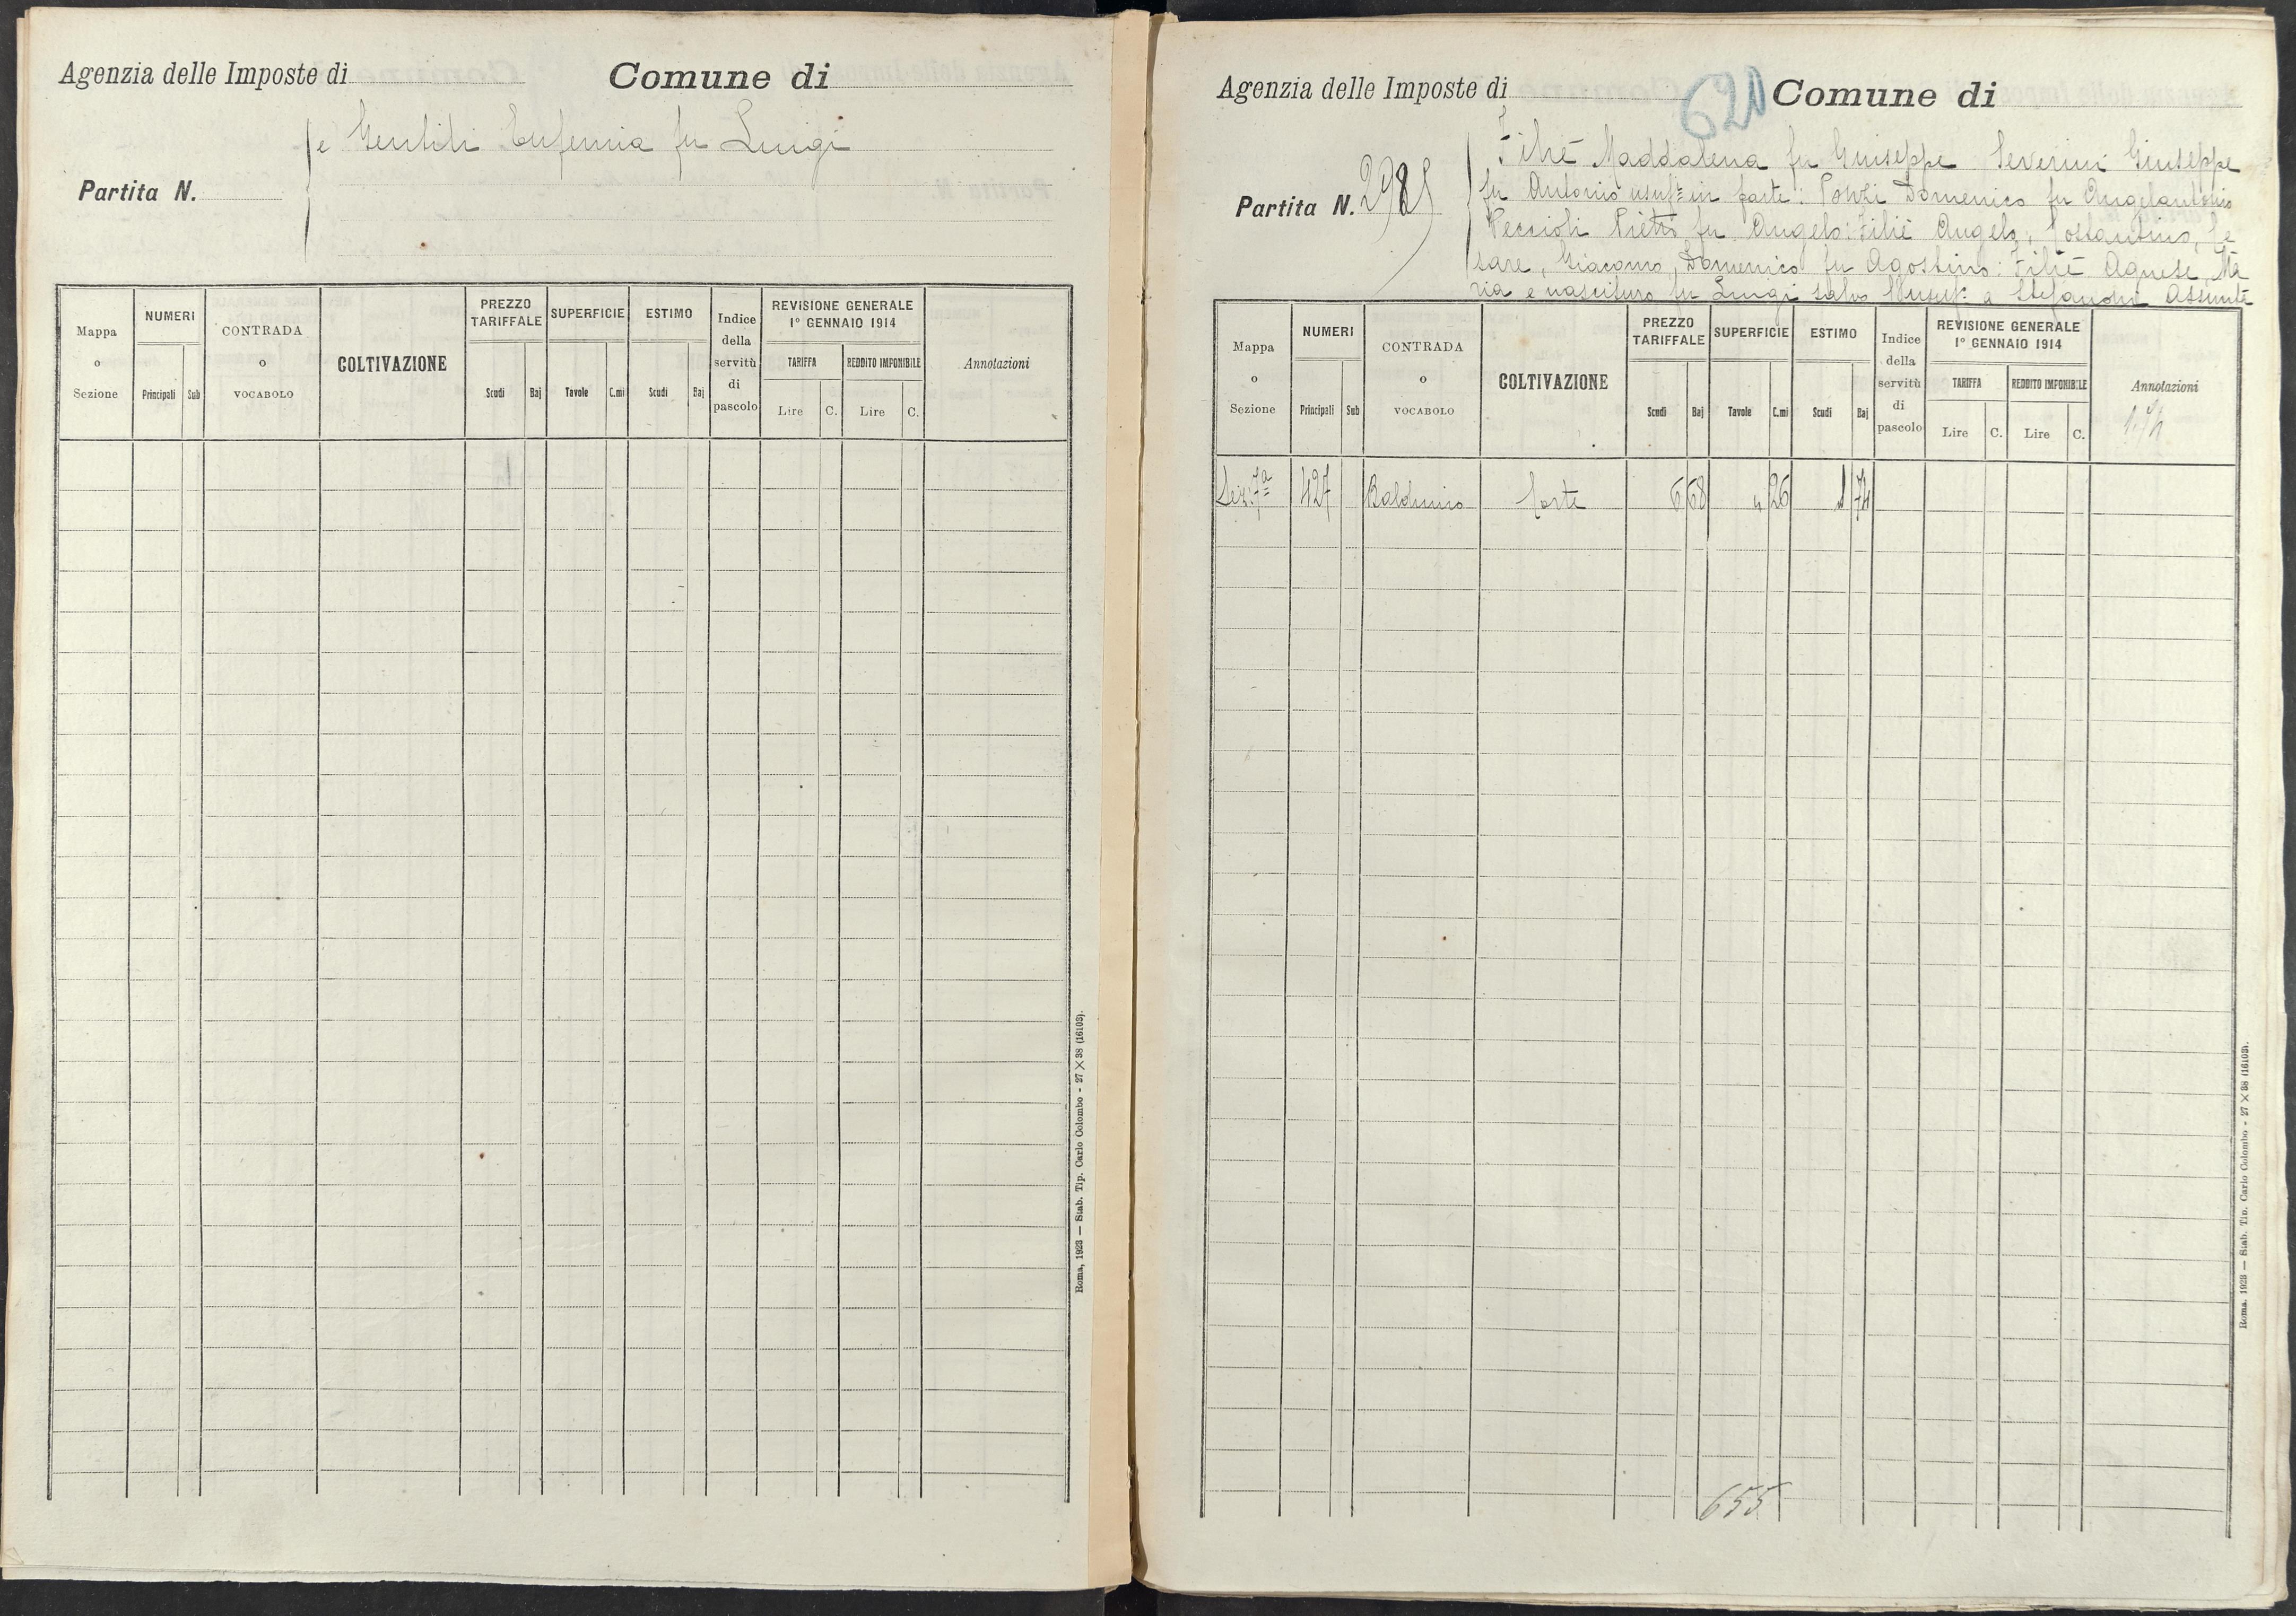 Agenzia delle Imposte di
Comune di
e Gentili Eufemia fu Luigi
Partita N.
Mappa o Sezione
NUMERI
Principali
Sub
CONTRADA o VOCABOLO
COLTIVAZIONE
PREZZO TARIFFALE
Scudi
Baj
SUPERFICIE
Tavole
C.mi
ESTIMO
Scudi
Baj
Indice della servitù di pascolo
REVISIONE GENERALE
1° GENNAIO 1914
TARIFFA
Lire
C.
REDDITO IMPONIBILE
Lire
C.
Annotazioni
Roma, 1923 — Stab. Tip. Carlo Colombo - 27 × 38 (16103).
Agenzia delle Imposte di
620
Comune di
Partita N. 2985
Filiè Maddalena fu Giuseppe Severini Giuseppe
fu Antonio usuf. in parte: Ponzi Domenico fu Angelantonio
Peccioli Pietro fu Angelo: Filiè Angelo, Costantino, Ce
sare, Giacomo, Domenico fu Agostino: Filiè Agnese, Ma
ria e nascituro fu Luigi salvo l'usuf. a Stefanini Assunta
Mappa o Sezione
NUMERI
Principali
Sub
CONTRADA o VOCABOLO
COLTIVAZIONE
PREZZO TARIFFALE
Scudi
Baj
SUPERFICIE
Tavole
C.mi
ESTIMO
Scudi
Baj
Indice della servitù di pascolo
REVISIONE GENERALE
1° GENNAIO 1914
TARIFFA
Lire
C.
REDDITO IMPONIBILE
Lire
C.
Annotazioni
Sez. 7a 427 Balduino Corte 6 68 " 26 1 74
655
Roma, 1923 — Stab. Tip. Carlo Colombo - 27 × 38 (16103).